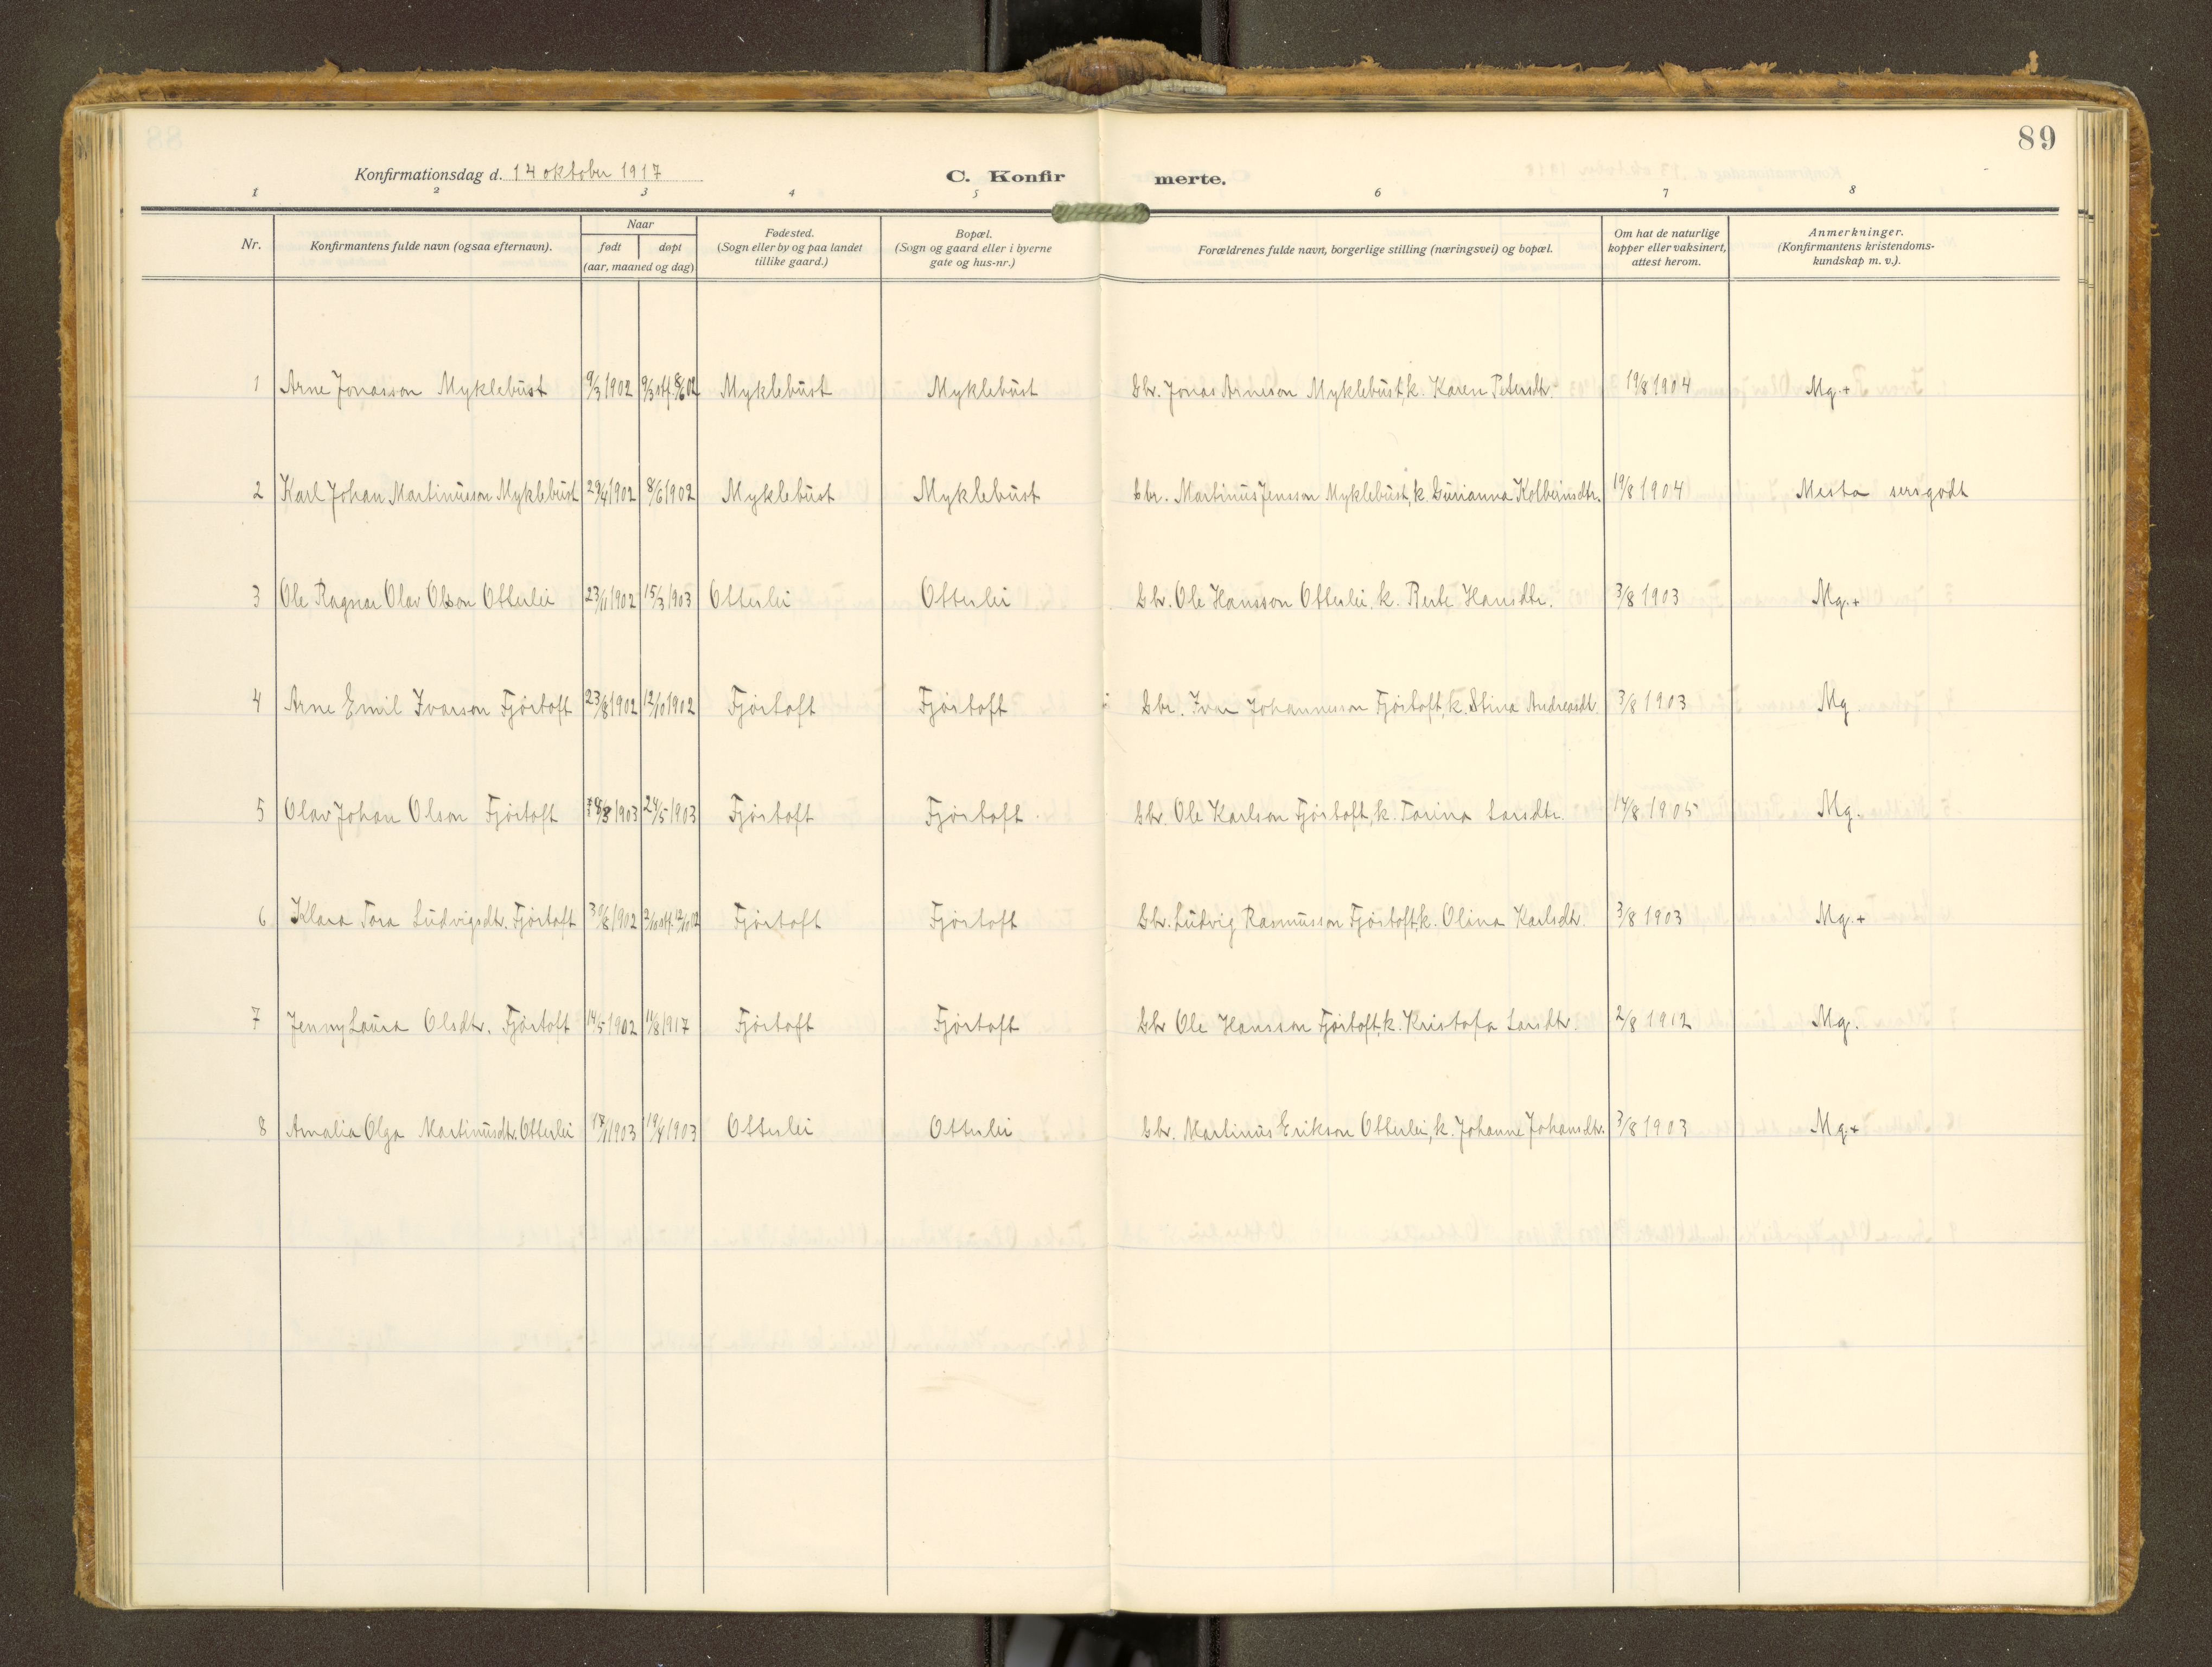 89
Konfirmationsdag d. 14 oktober 1917 C. Konfir merte.
1 2 3 4 5 6 7 8
Nr. Konfirmantens fulde navn (ogsaa efternavn). Naar født døpt (aar, maaned og dag) Fødested. (Sogn eller by og paa landet tillike gaard.) Bopæl. (Sogn og gaard eller i byerne gate og hus-nr.) Forældrenes fulde navn, borgerlige stilling (næringsvei) og bopæl. Om hat de naturlige kopper eller vaksinert, attest herom. Anmerkninger. (Konfirmantens kristendoms-kundskap m. v.).
1 Arne Jonasson Myklebust 9/3 1902 9/3 stf. 8/6 02 Myklebust Myklebust Gbr. Jonas Arneson Myklebust, k. Karen Petersdtr. 19/8 1904 Mg.+
2 Karl Johan Martinusson Myklebust 29/4 1902 8/6 1902 Myklebust Myklebust Gbr. Martinus Jensson Myklebust, k. Gurianna Kolbeinsdtr. 19/8 1904 Mesta sers godt
3 Ole Ragnar Olav Olson Otterlei 23/11 1902 15/3 1903 Otterlei Otterlei Gbr. Ole Hansson Otterlei, k. Berte Hansdtr. 3/8 1903 Mg.+
4 Arne Emil Ivarson Fjørtoft 23/8 1902 12/10 1902 Fjørtoft Fjørtoft Gbr. Ivar Johannesson Fjørtoft, k. Stina Andreasdt. 3/8 1903 Mg
5 Olav Johan Olson Fjørtoft 1903 24/5 1903 Fjørtoft Fjørtoft Gbr. Ole Karlson Fjørtoft, k. Tarina Larsdtr. 14/8 1905 Mg.
6 Klara Tora Ludvigsdtr. Fjørtoft 30/8 1902 2/10 stf. 12/10 02 Fjørtoft Fjørtoft Gbr. Ludvig Rasmusson Fjørtoft, k. Olina Karlsdtr. 3/8 1903 Mg.+
7 Jenny Laura Olsdtr. Fjørtoft 14/5 1902 11/8 1917 Fjørtoft Fjørtoft Gbr Ole Hansson Fjørtoft, k. Kristofa Larsdtr. 2/8 1912 Mg.
8 Amalia Olga Martinusdtr. Otterlei 1903 19/4 1903 Otterlei Otterlei Gbr. Martinus Erikson Otterlei, k. Johanne Johansdtr. 3/8 1903 Mg.+